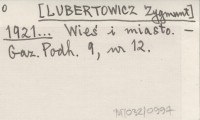 0 [LUBERTOWICZ Zygmunt]
1921... Wieś i miasto. –
Gaz. Podh. 9, nr 12.
M/032/0994